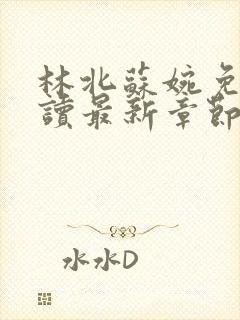 林北蘇婉免
讀最新章節
水水D